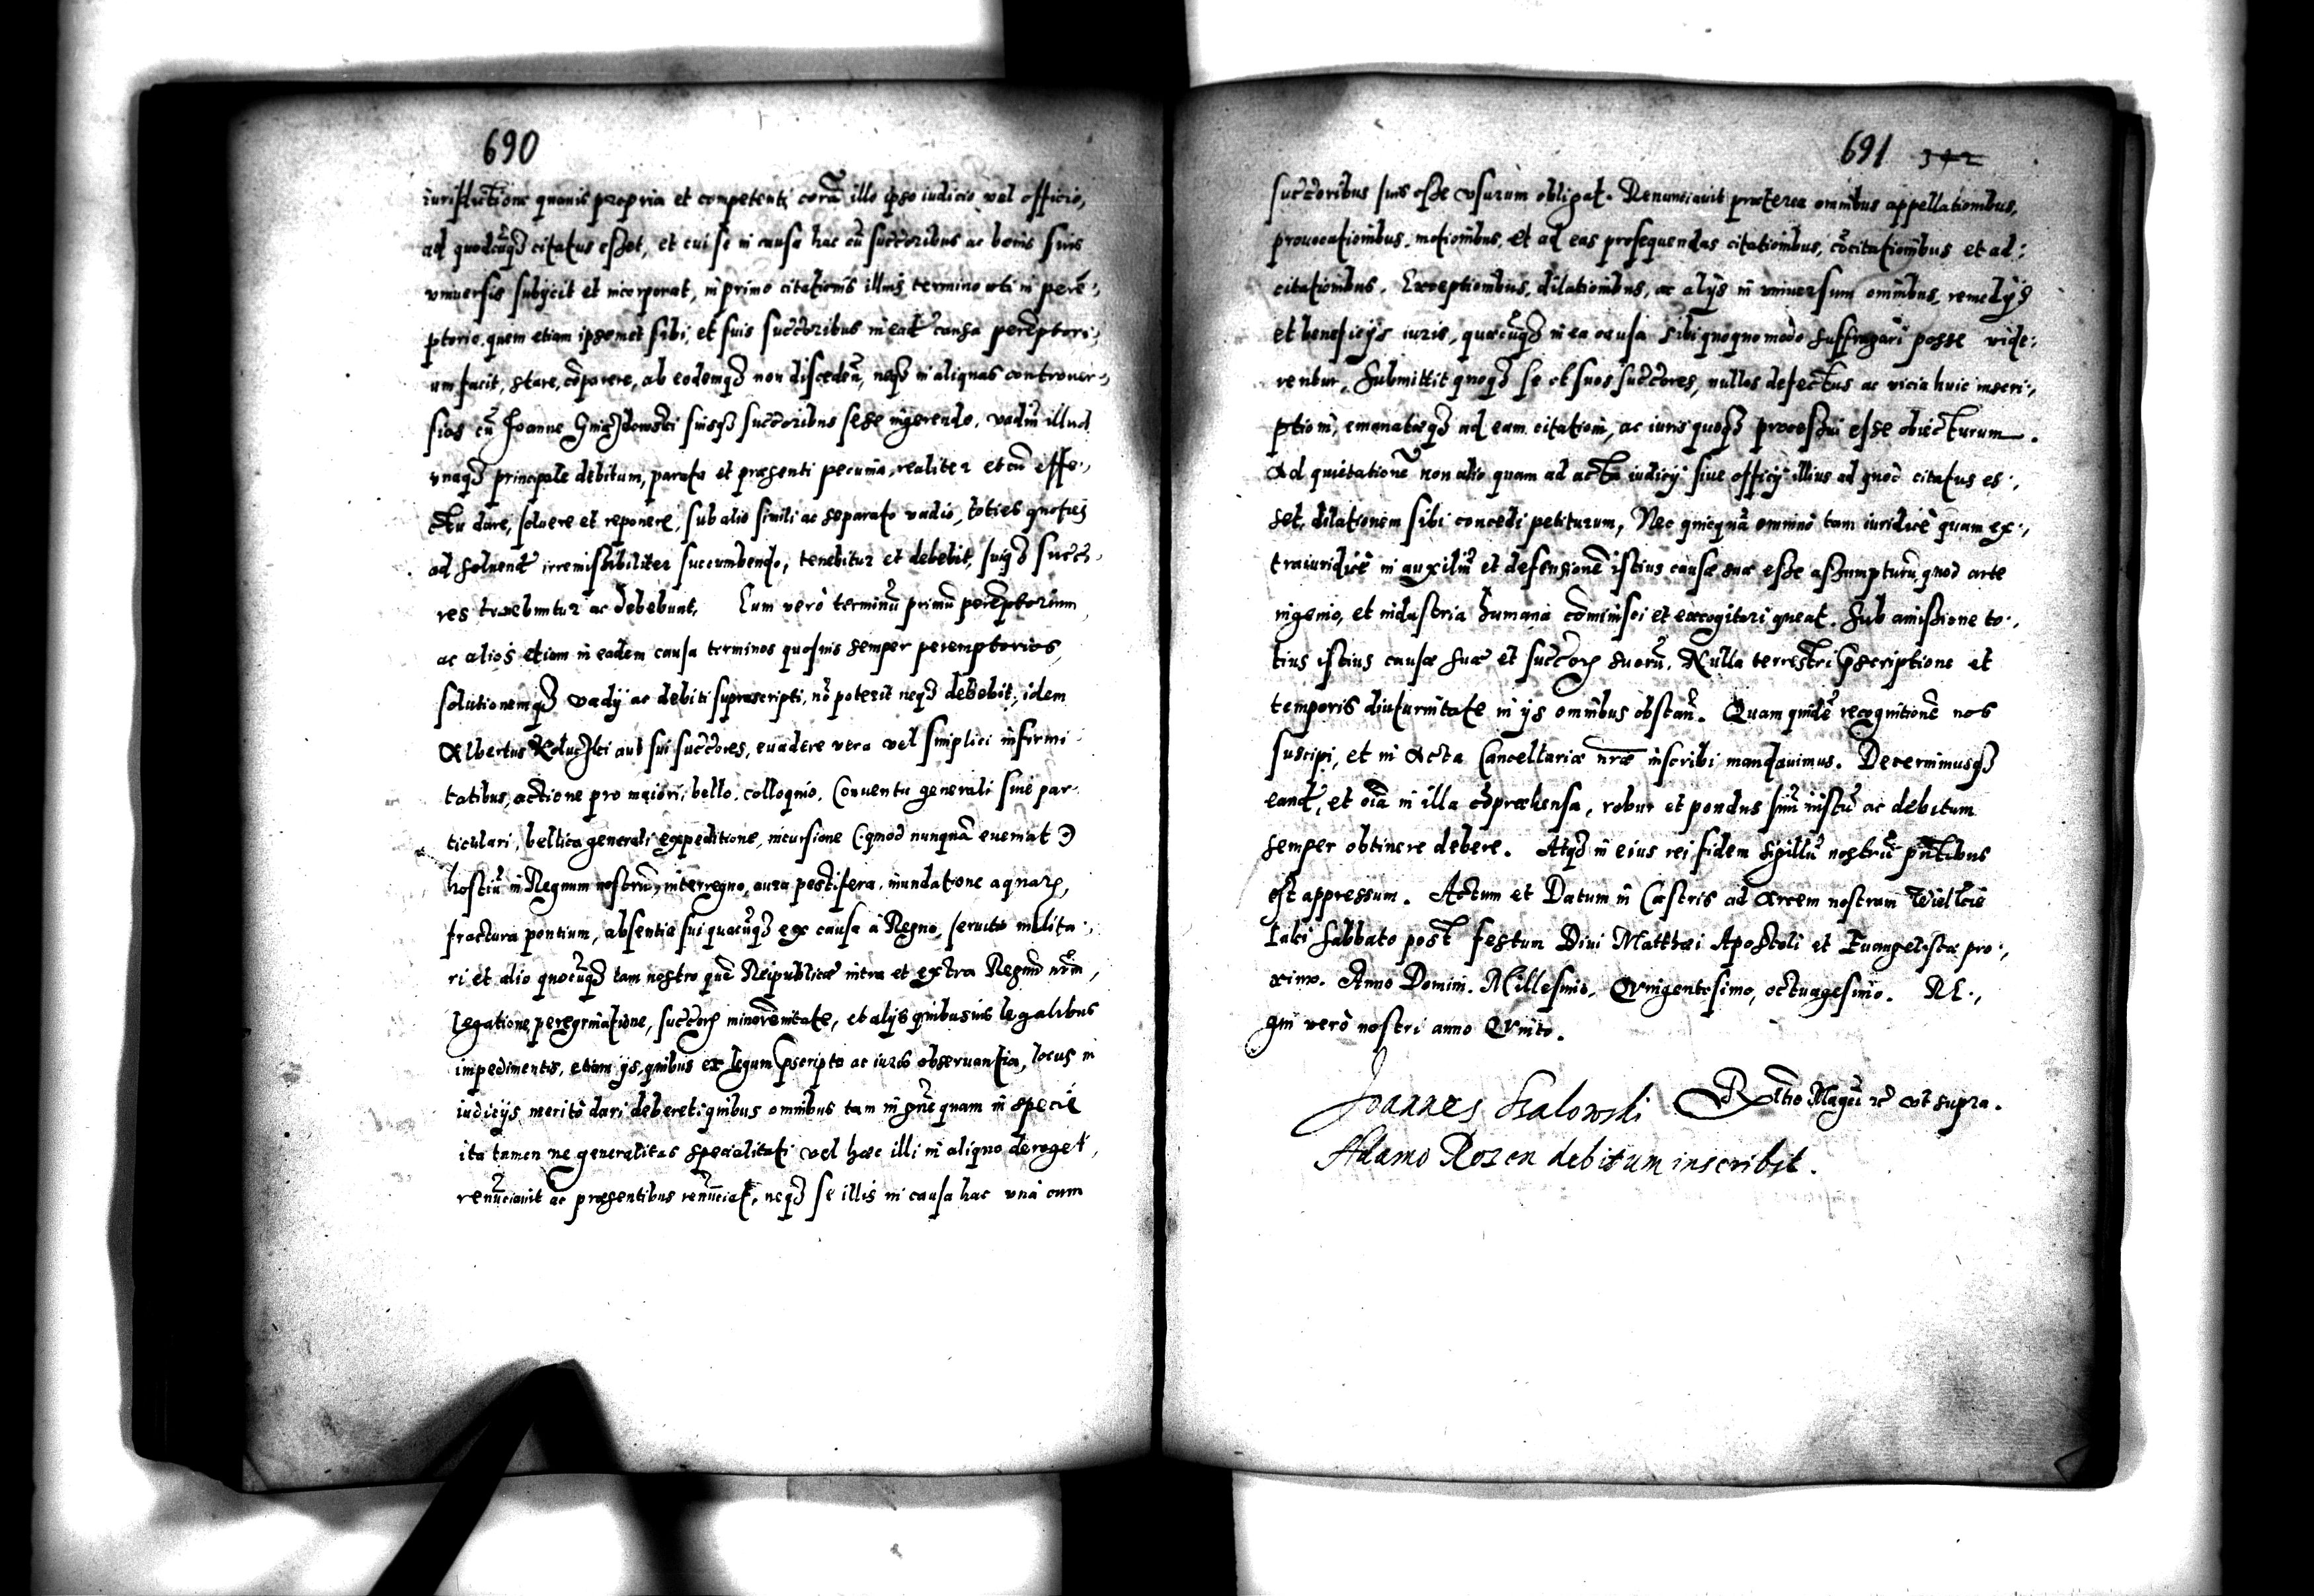 690
iurisdictione quamis propria et competenti corã illo ipso iudicio vel officio,
ad quodcũq̃ citatus esset, et cui se in causa hac cũ succ̃oribus ac bonis suis
vniuersis subycit et incorporat, in primo citationis illius termino uti in perẽ:,
ptorio, quem etiam ipsemet sibi, et suis succ̃oribus in ead̃ causa perẽptori:,
um facit, stare, cõparere, ab eodemq̃ non discedẽ, neq̃ in aliquas controuer:,
sias cũ Joanne suisq̃ succ̃oribus sese ingerendo, vadiũ illud
vnaq̃ principale debitum, parata et præsenti pecunia, realiter et cũ effe:,
ctu dare, soluere et reponere, sub alio simili ac separato vadio, toties quoties
ad soluend̃ irremissibiliter succumbendo, tenebitur et debebit, suiq̃ succo:
res tenebuntur ac debebunt. Cum verò terminũ primũ perẽptorium,
ac alios etiam in eadem causa terminos quosuis semper peremptorios,
solutionemq̃ vadij ac debiti suprascripti, nõ poterit neq̃ debebit, idem
Albertus aut sui succ̃ores, euadere vera vel simplici infirmi
tatibus, actione pro maiori, bello, colloquio, Conuentu generali siue par
ticulari, bellica generali expeditione, incursione (:quod nunquã eueniat:)
hostiũ in Regnum nostrũ, interregno, aura pestifera, inundatione aquarȝ,
fractura pontium, absentia sui quacũq̃ ex causa à Regno, seruitio milita:,
ri et alio quocũq̃ tam nostro quẽ Reipublicæ intra et extra Regnũ nr̃m,
legatione, peregrinatione, succ̃orȝ minorẽnitate, et alijs quibusuis legalibus
impedimentis, etiam ijs, quibus ex legum p̃scripto ac iuris obseruantia, locus in
iudicijs meritò dari deberet: quibus omnibus tam in gñe quam in specie
ita tamen ne generalitas specialitati vel hæc illi in aliquo deroget,
renũciauit ac præsentibus renũciat, neq̃ se illis in causa hac vnà cum
691 342
succ̃oribus suis esse vsurum obligat. Renunciauit præterea omnibus appellationibus,
prouocationibus, motionibus, et ad eas prosequendas citationibus, cõcitationibus et ad:
citationibus. Exceptionibus, dilationibus, ac alijs in vniuersum omnibus, remedijs
et beneficijs iuris, quæcũq̃ in ea causa sibi quoquo modo suffragari posse vide:,
rentur, submittit quoq̃ se et suos succ̃ores, nullos defectus ac vicia huic inscri:,
ptioni, emanatæq̃ ad eam citationi, ac iuris quoq̃ processui esse obiecturum.
Ad quietationẽ non alio quam ad acta iudicij siue officij illius ad quod citatus es:,
set, dilationem sibi concedi petiturum, Nec quicquã omninò tam iuridicè quam ex:,
traiuridicè in auxiliũ et defensionẽ istius causæ suæ esse assumpturũ, quod arte
ingenio, et industria humana cõminisci et excogitari queat. Sub amissione to:,
tius istius causæ suæ et succ̃orȝ suorũ. Nulla terrestri p̃scriptione et
temporis diuturnitate in ijs omnibus obstañ. Quam quidẽ recognitionẽ nos
suscipi, et in Acta Cancellariæ nr̃æ inscribi mandauimus. Decernimusq̃
eand̃, et oĩa in illa cõpræhensa, robur et pondus suũ iustũ ac debitum
semper obtinere debere. Atq̃ in eius rei fidem sigillũ nostrũ pñtibus
est appressum. Actum et Datum in Castris ad Arcem nostram Wielkie
Luki Sabbato post festum Diui Matthæi Apostoli et Euangelistæ pro:,
ximo. Anno Domini. Millesimo, Quingentesimo, octuagesimo. Re:,
gni verò nostri anno Quinto.
Joannes Skalowski R̃l̃tio Magc̃i ꝛc̃ vt supra.
Adamo Rozen debitum inscribit.